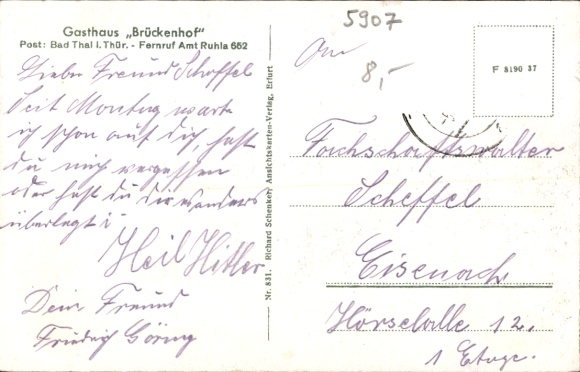 Gasthaus „Brückenhof"
Post: Bad Thal i. Thür. - Fernruf Amt Ruhla 652
Lieber Freund Scheffel
Seit Montag warte
ich schon auf dich, hast
du mich vergessen
oder hast du dir es anders
überlegt?
Heil Hitler
Dein Freund
Friedrich Göring
Nr. 831. Richard Schenker, Ansichtskarten-Verlag, Erfurt
5907
8,-
F 8190 37
An
Fachschaftswalter
Scheffel
Eisenach
Hörselalle 12.
1 Etage.